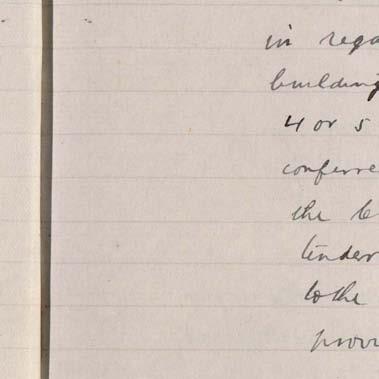 in rega
building
4 or 5
conferre
the b
tender
to the
prov